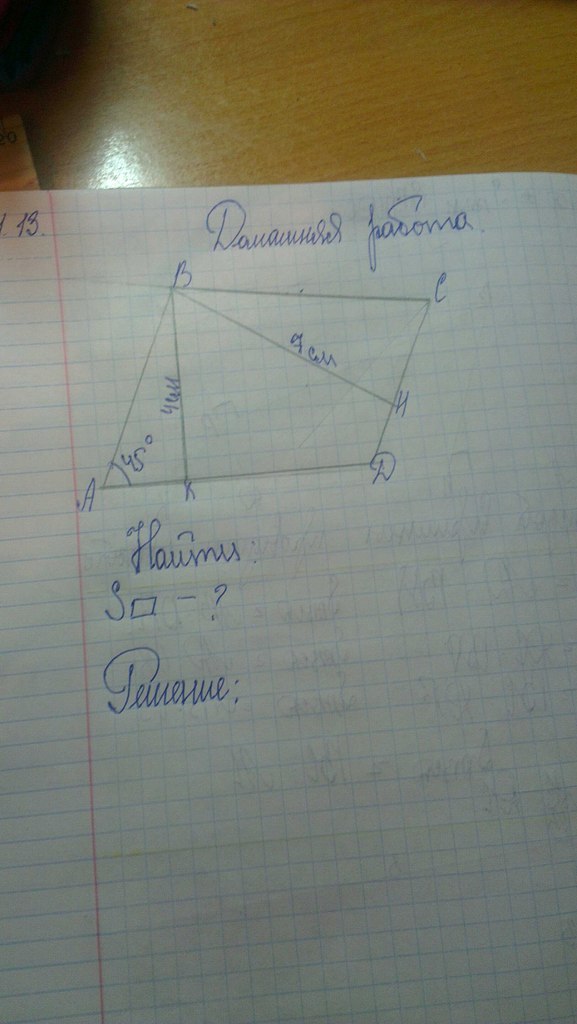 13.
Домашняя работа.
B
C
7 см
4 см
H
45°
A
K
D
Найти:
S▱ - ?
Решение: